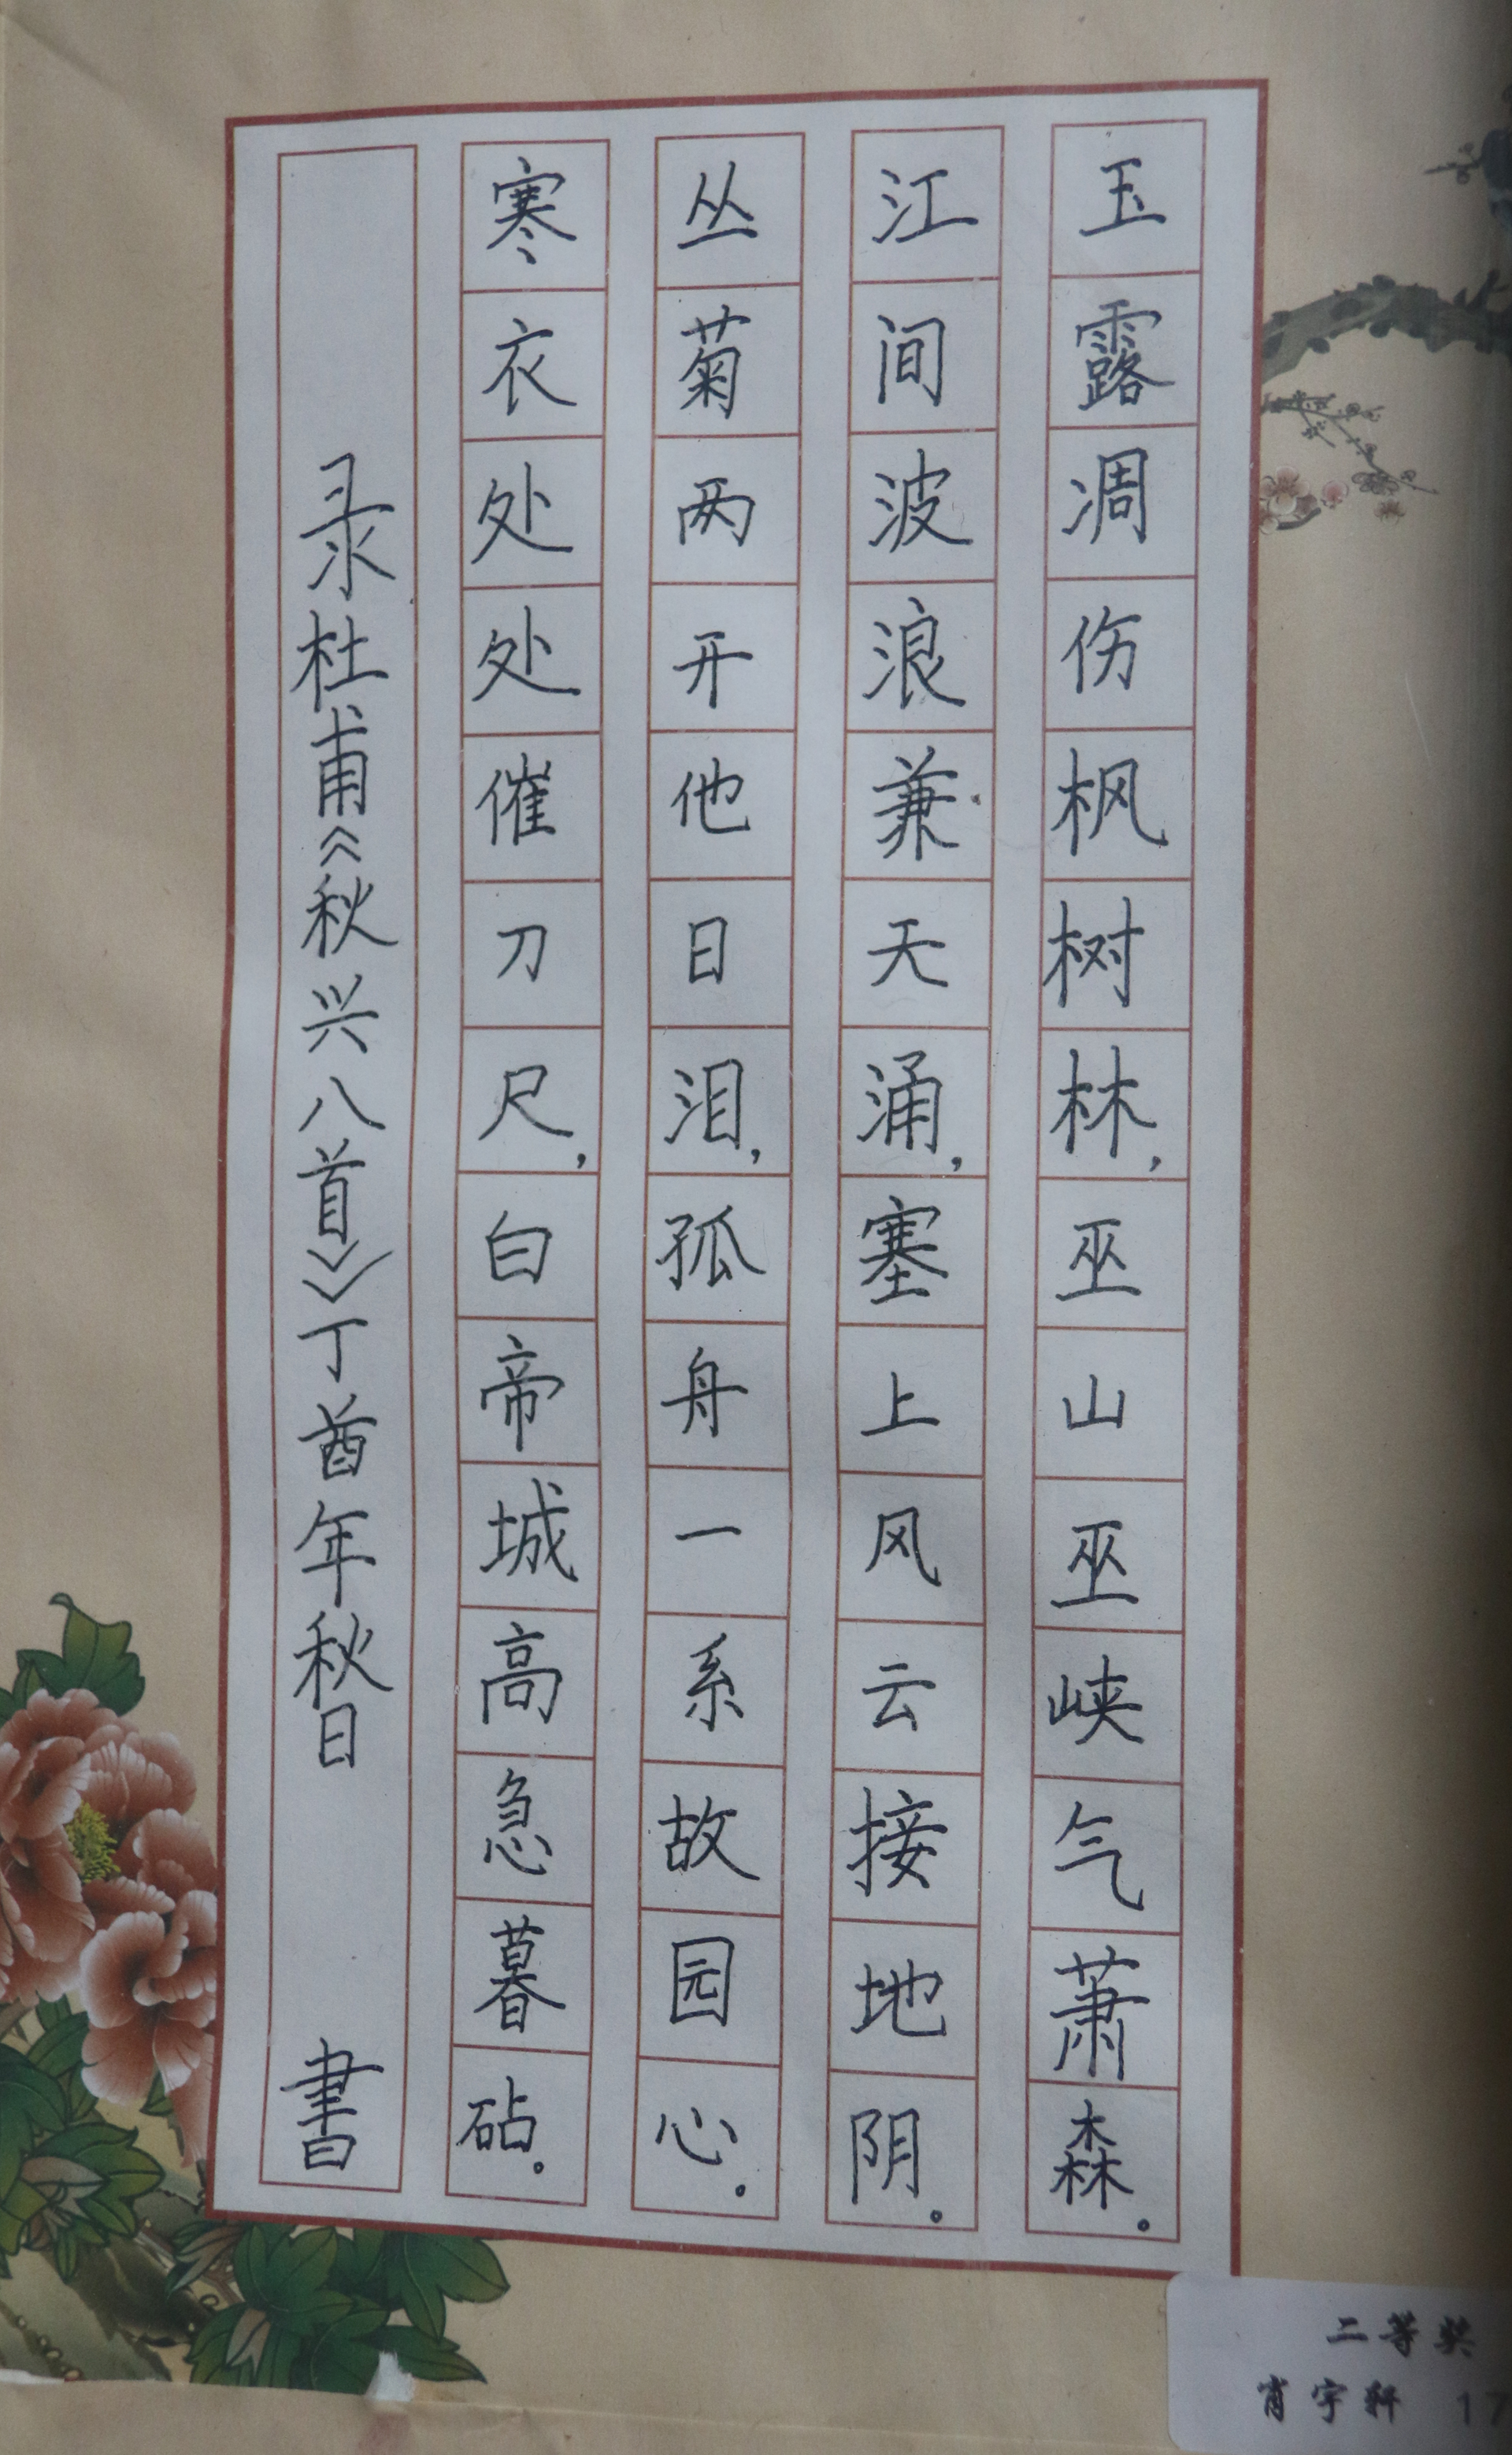 玉露凋伤枫树林,巫山巫峡气萧森。
江间波浪兼天涌,塞上风云接地阴。
丛菊两开他日泪,孤舟一系故园心。
寒衣处处催刀尺,白帝城高急暮砧。
录杜甫《秋兴八首》丁酋年秋日 書
二等奖
肖宇轩 17